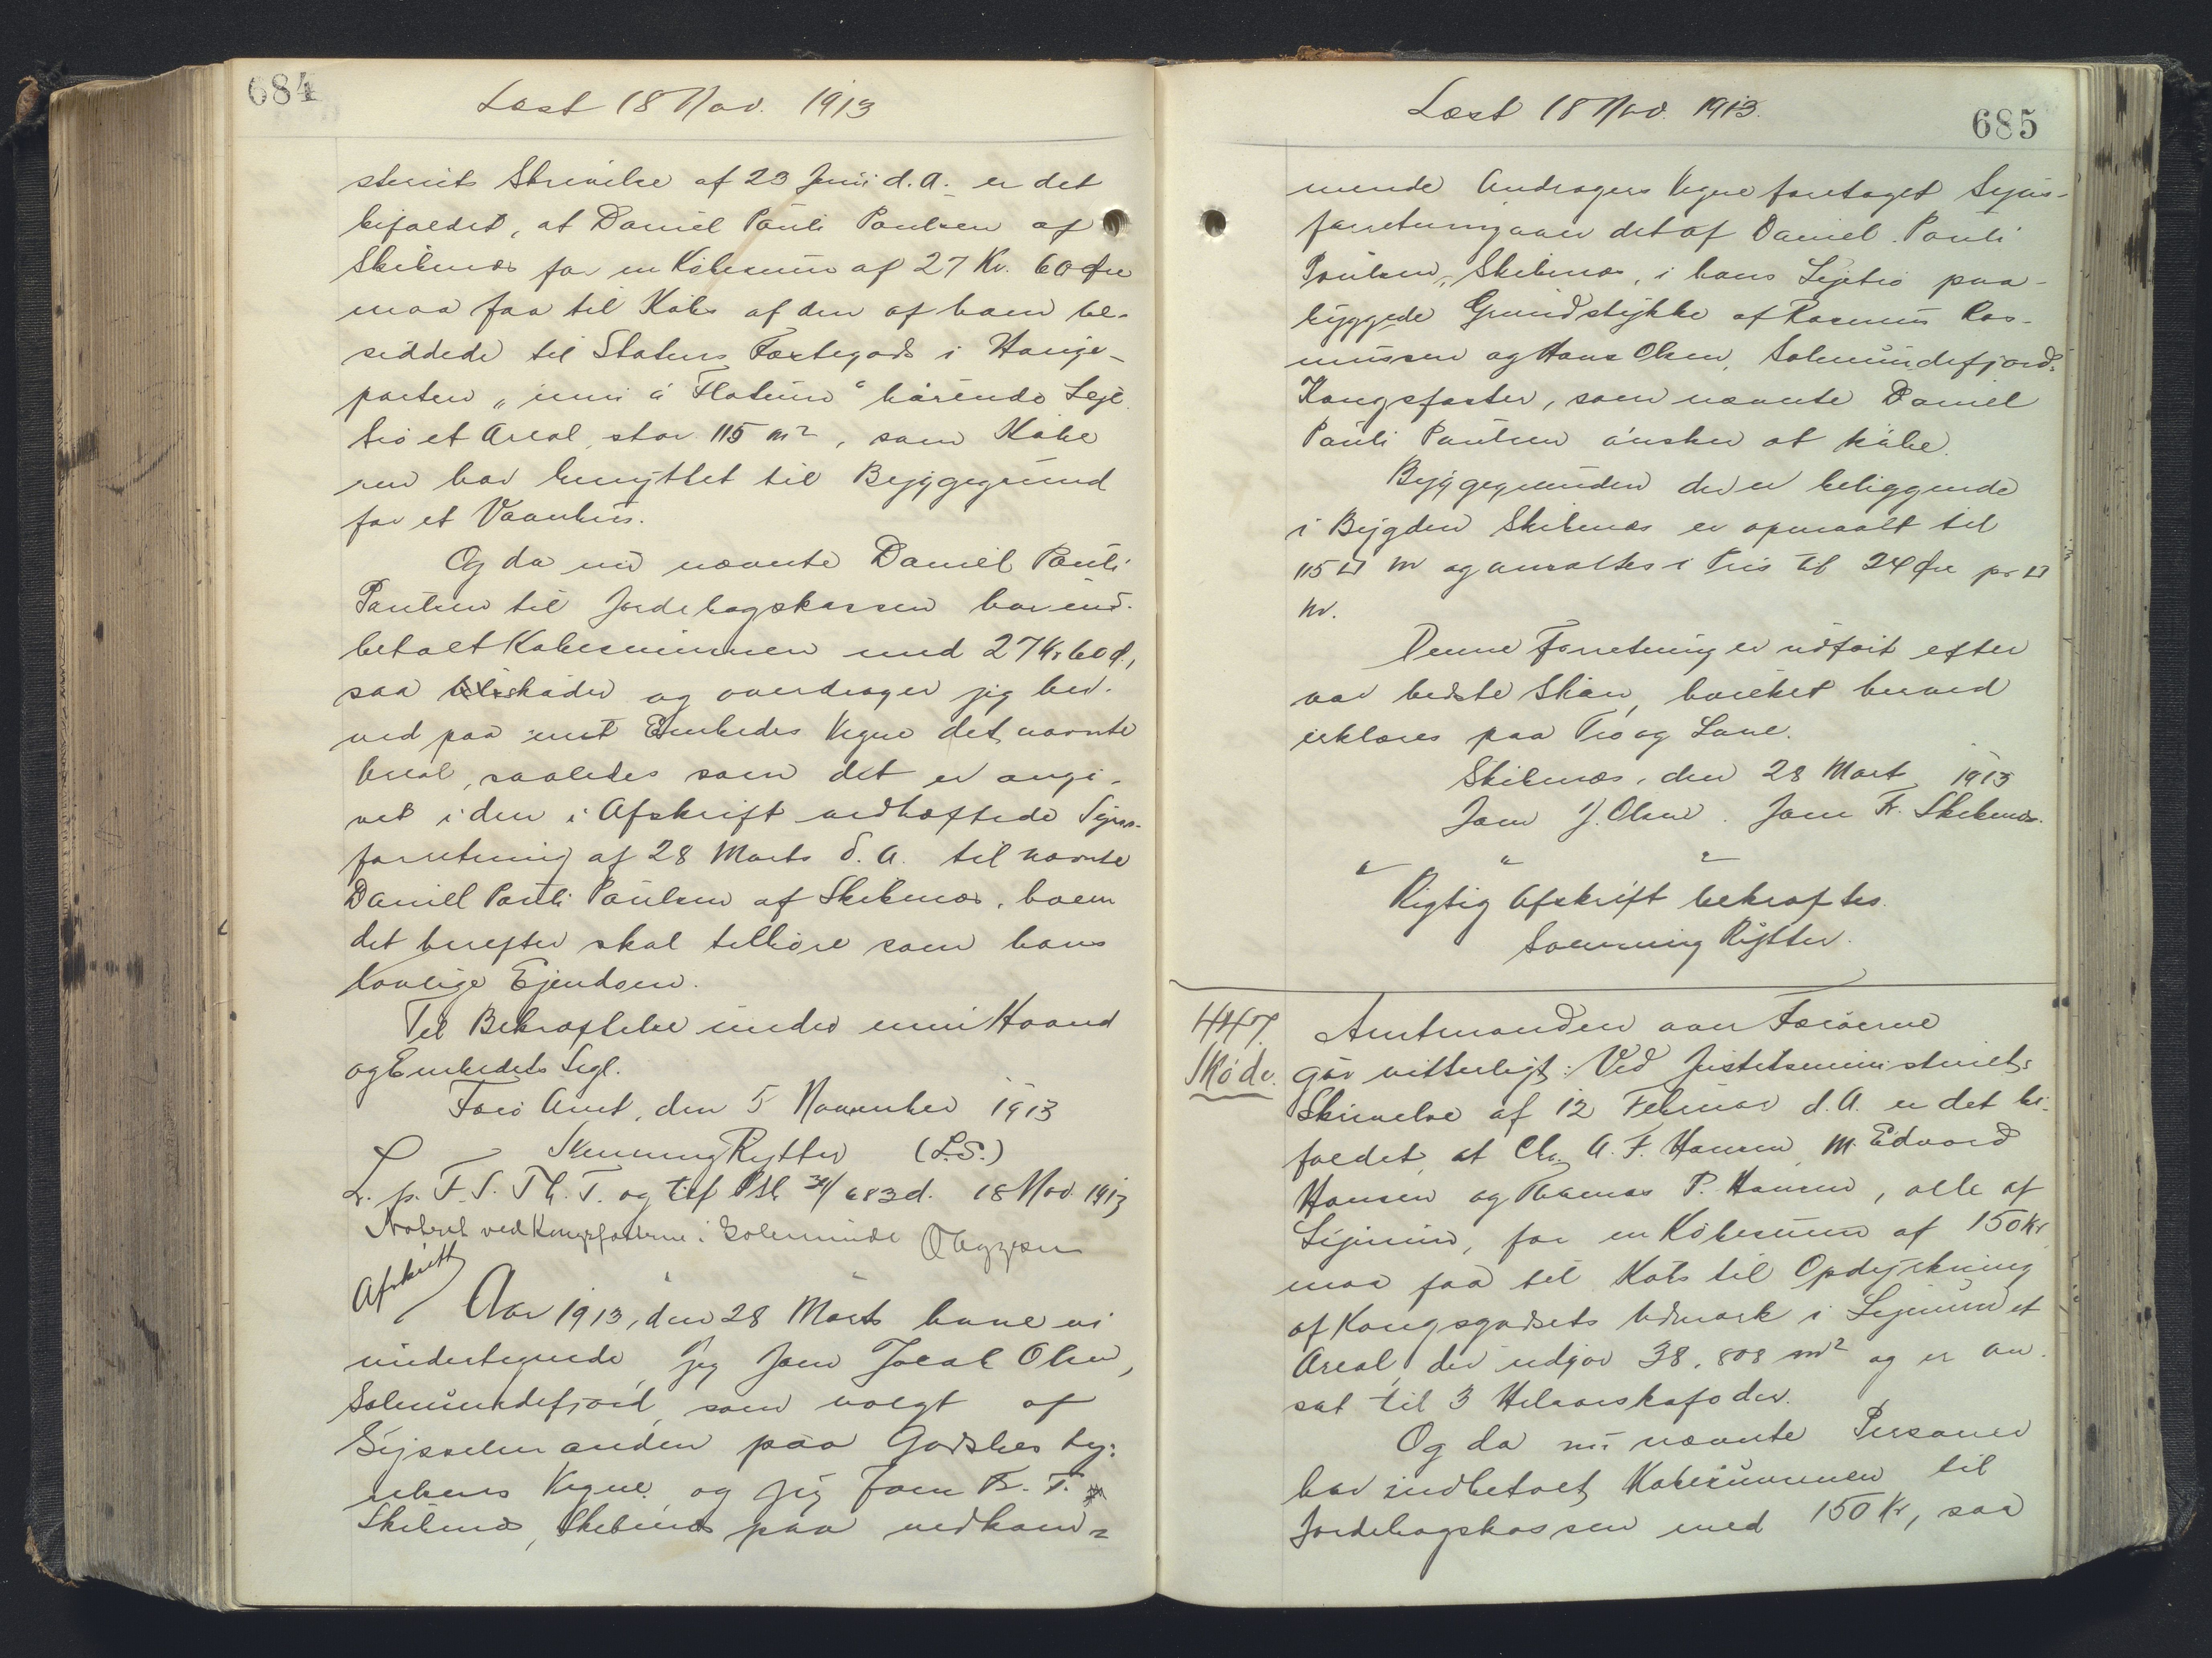 684
Læst 18 Nov. 1913
steriets Skrivelse af 23 Juni d.A. er det
bifaldet, at Daniel Pauli Poulsen af
Skibenæs for en Købesum af 27 Kr. 60 Øre
maa faa til Købs af den af ham be-
siddede til Statens Fæstegods i Hauge-
parten „inni á Fløtum“ hørende Leje
trø et Areal, stor 115 m², som Købe
ren har benyttet til Byggegrund
for et Vaanhus.
Og da nu nævnte Daniel Pauli
Poulsen til Jordebogskassen har ind-
betalt Købesummen med 27 Kr 60 Ø,
saa skøder og overdrager jeg her-
ved paa mit Embedes Vegne det nævnte
Areal, saaledes som det er angi-
vet i den i Afskrift vedhæftede Syns-
forretning af 28 Marts d.A. til nævnte
Daniel Pauli Poulsen af Skibenæs, hvem
det herefter skal tilhøre som hans
lovlige Ejendom.
Til Bekræftelse under min Haand
og Embedets Segl.
Færø Amt, den 5 November 1913
Svenning Rytter (L.S.)
L. p. F. S. Th. T. og tilf 683d. 18 Nov. 1913
Noteret ved Kongsfæsterne i Solmunde
Afskrift
Aar 1913, den 28 Marts have vi
undertegnede, jeg Joen Joeal Olsen,
Solmundefjord, som valgt af
Sysselmanden paa Godsbesty-
relsens Vegne, og jeg Joen Fr. T.
Skibenæs, Skibenæs paa vedkom=
Læst 18 Nov. 1913.
685
mende Andragers Vegne foretaget Syns-
forretning over det af Daniel Pauli
Poulsen, Skibenæs, i hans Lejetrø paa-
byggede Grundstykke af Rasmus Ras-
mussen og Hans Olsen, Solmundefjord.
Kongsfæster, som nævnte Daniel
Pauli Poulsen ønsker at købe.
Byggegrunden der er beliggende
i Bygden Skibenæs er opmaalt til
115 □ m og ansættes i Pris til 24 Øre pr □
m.
Denne Forretning er udført efter
vor bedste Skøn, hvilket herved
erklæres paa Tro og Love.
Skibenæs, den 28 Mart 1913
Joen J. Olsen. Joen Fr. Skibenæs.
" " "
Rigtig Afskrift bekræftes.
Svenning Rytter.
447.
Skøde.
Amtmanden over Færøerne
gør vitterligt: Ved Justitsministeriets
Skrivelse af 12 Februar d.A. er det bi-
faldet, at Chr. A. F. Hansen, M. Edvard
Hansen og Thomas P. Hansen, alle af
Sejmun, for en Købesum af 150 Kr
maa faa til Købs til Opdyrkning
af Kongsgodsets Udmark i Sejmun et
Areal, der udgør 38,808 m² og er an-
sat til 3 Helaarskofoder.
Og da nu nævnte Personer
har indbetalt Købesummen til
Jordebogskassen med 150 Kr, saa